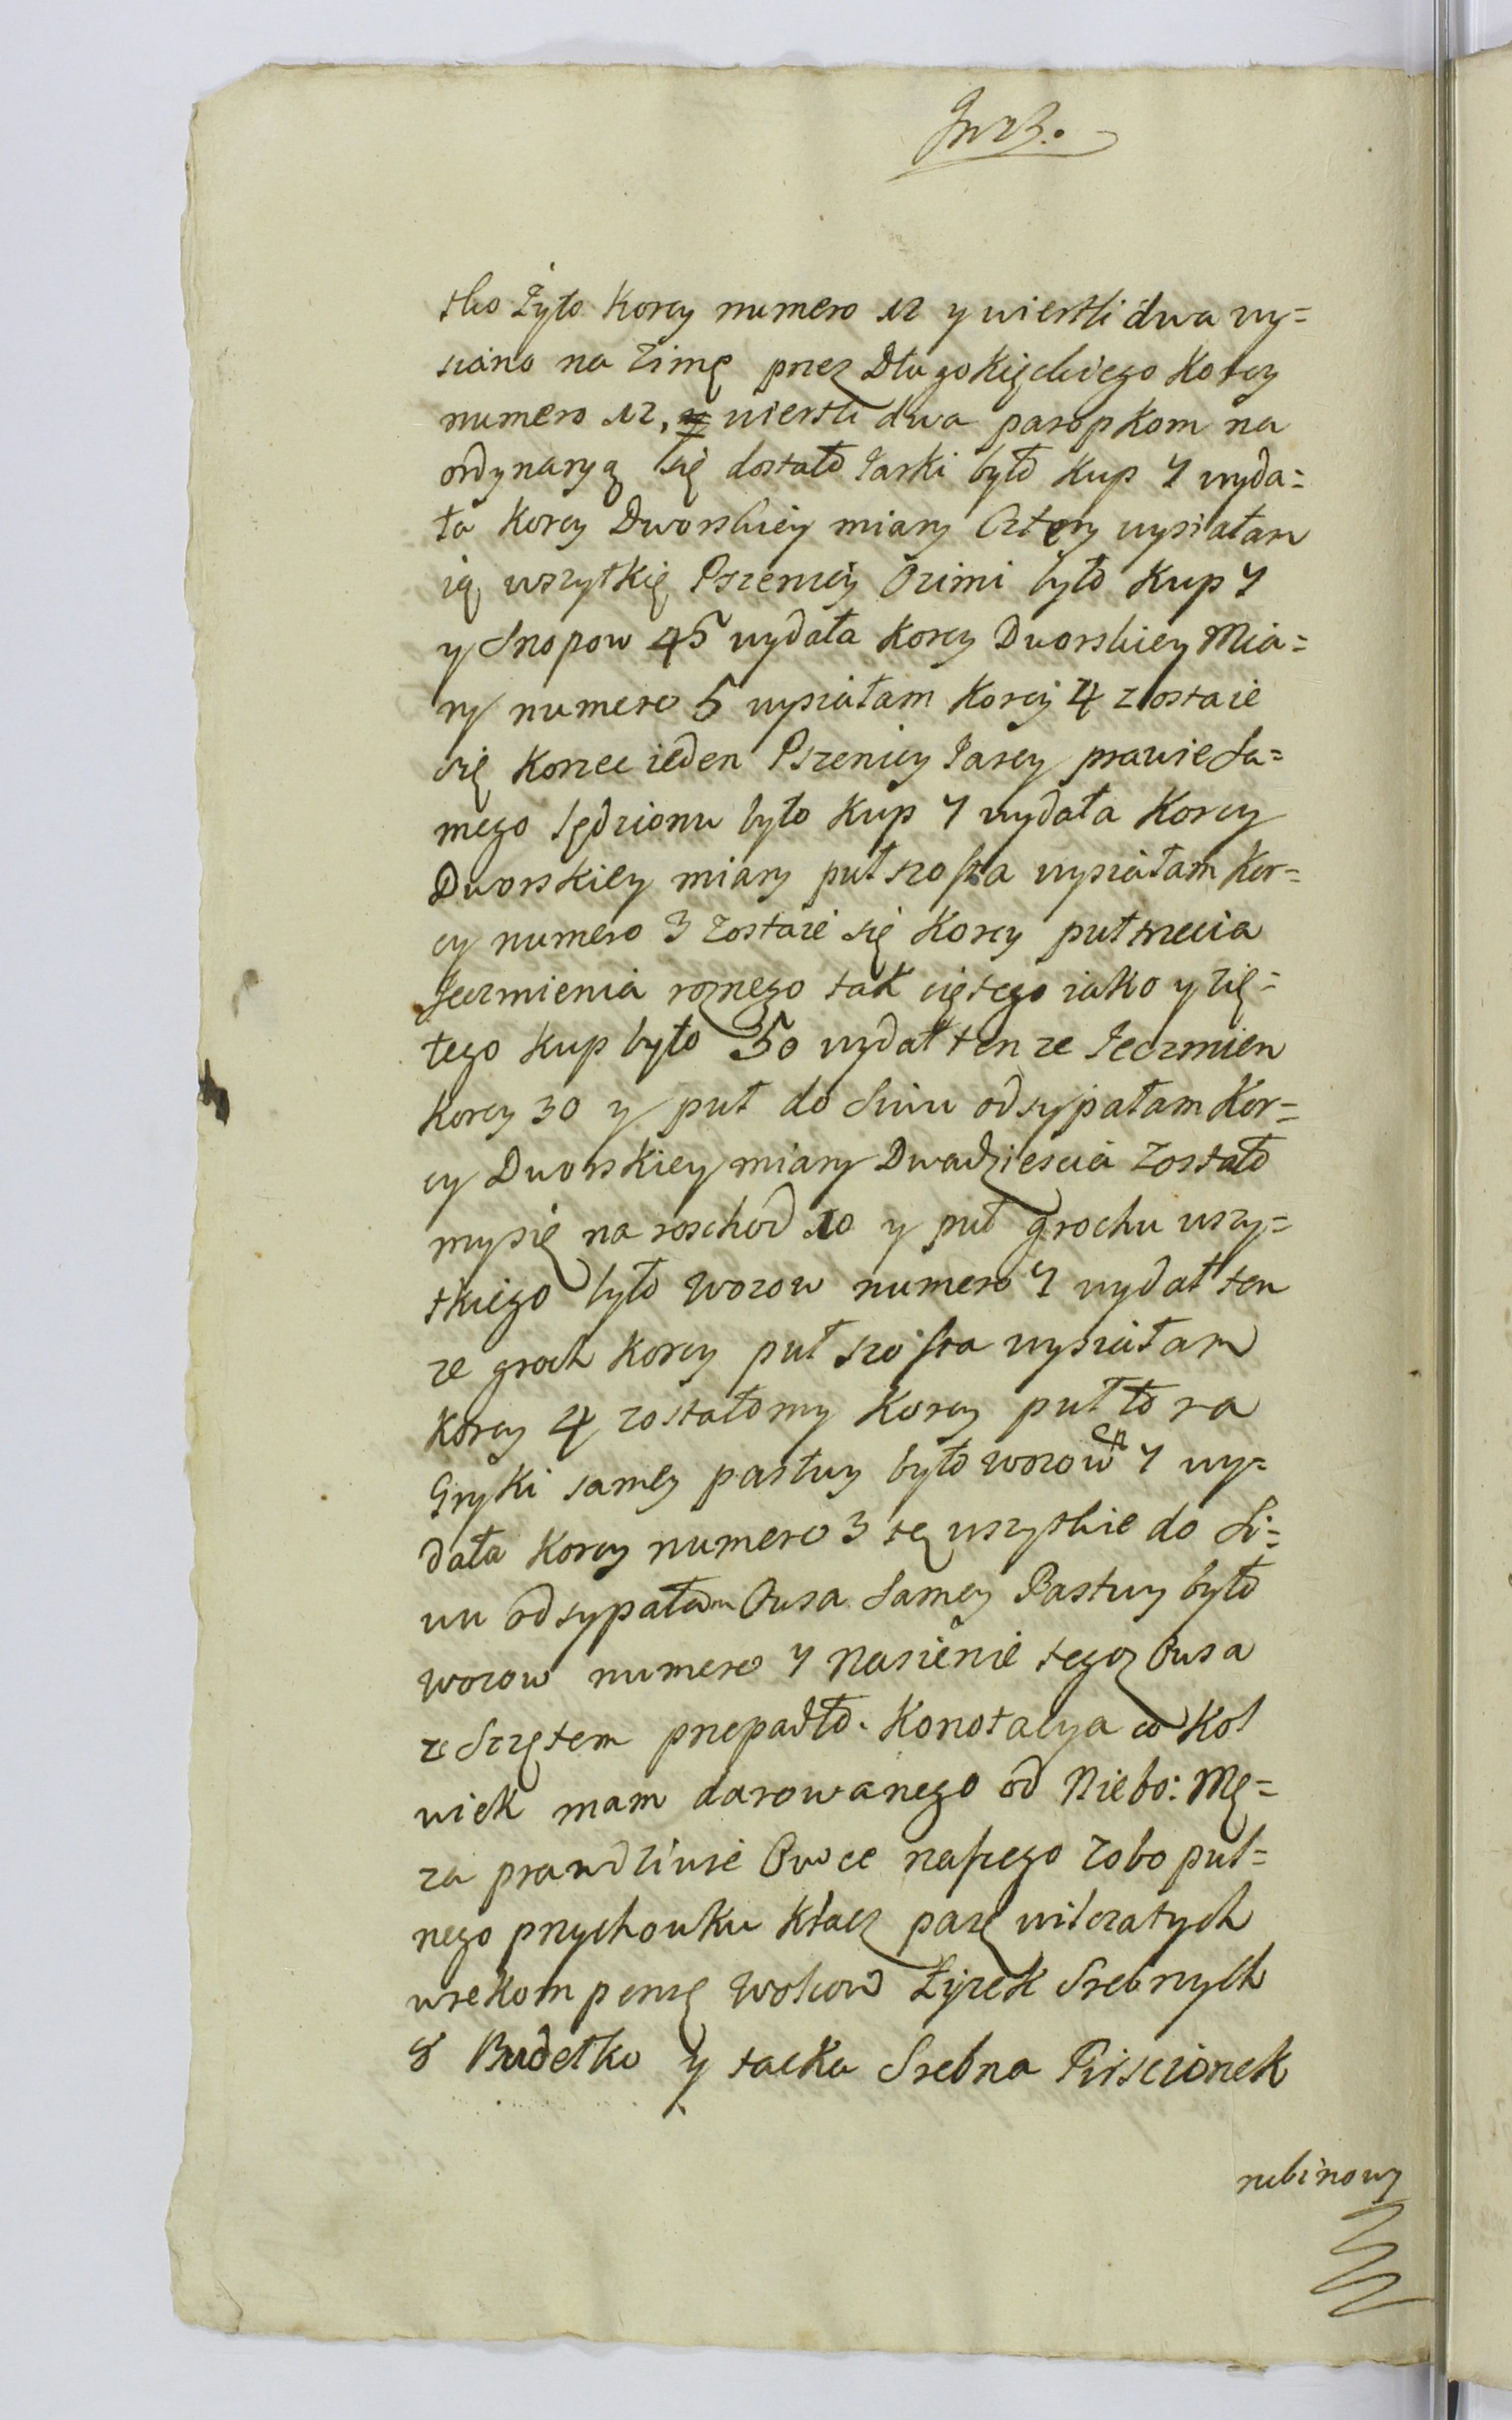 stko Żyto Korcy numero 12 y wiertli dwa wy=
siano na Zimę przez Długokięckiego Korcy
numero 12, wiertli dwa paropkom na
ordynaryą się dostało Jarki było Kup 7 wyda=
ła Korcy Dworskiey miary Cztery wysiałam
ią wszytkię Pszenicy Ozimi było Kup 7
y Snopow 45 wydała Korcy Dworskiey Mia=
ry numero 5 wysiałam Korcy 4 zostaie
się Korzec ieden Pszenicy Jarey prawie Sa=
mego Sędzionu było Kup 7 wydała Korcy
Dworskiey miary puł szosta wysiałam Kor=
cy numero 3 zostaie się Korcy puł trzecia
Jeczmienia roznego tak ciętego iako y zię=
tego Kup było 50 wydał ten ze Jeczmien
Korcy 30 y puł do Siwu odsypałam Kor=
cy Dworskiey miary Dwadziescia Zostało
mysię na roschod 10 y puł grochu wszy=
tkiego było Wozow numero 7 wydał ten
ze groch Korcy puł szosta wysiałam
Korcy 4 zostałomy Korcy puł to ra
Gryki samey pastwy było wozow 7 wy=
dała Korcy numero 3 tę wszystkie do Si=
wu odsypałam Owsa Samey Pastwy było
wozow numero 7 Nasienie tegoz Owsa
ze Sczętem przepadło. Konotacya co Kol
wiek mam darowanego od Niebo: Mę=
za prawdziwie Owce naszego Zobo pul=
nego przychowku Klacz parę wilczatych
wrekompensę Wołow Łyzek Srebnych
8 Pudełko y tacka Srebna Piiscionek
rubinowy